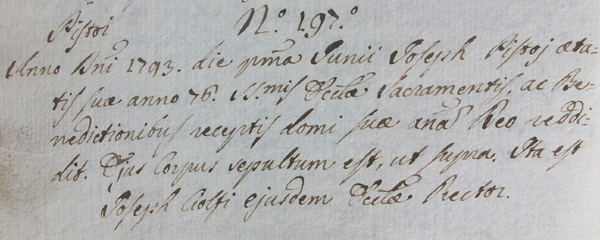 Pistoi
N.º 197.º
Anno Dni 1793. die pma Junii Joseph Pistoj æta-
tis suæ anno 76. SS.mis Eccłæ Sacramentis, ac Be-
nedictionibus receptis domi suæ anã Deo reddi-
dit. Ejus Corpus sepultum est, ut supra. Ita est
Joseph Ciolfi ejusdem Eccłæ Rector.